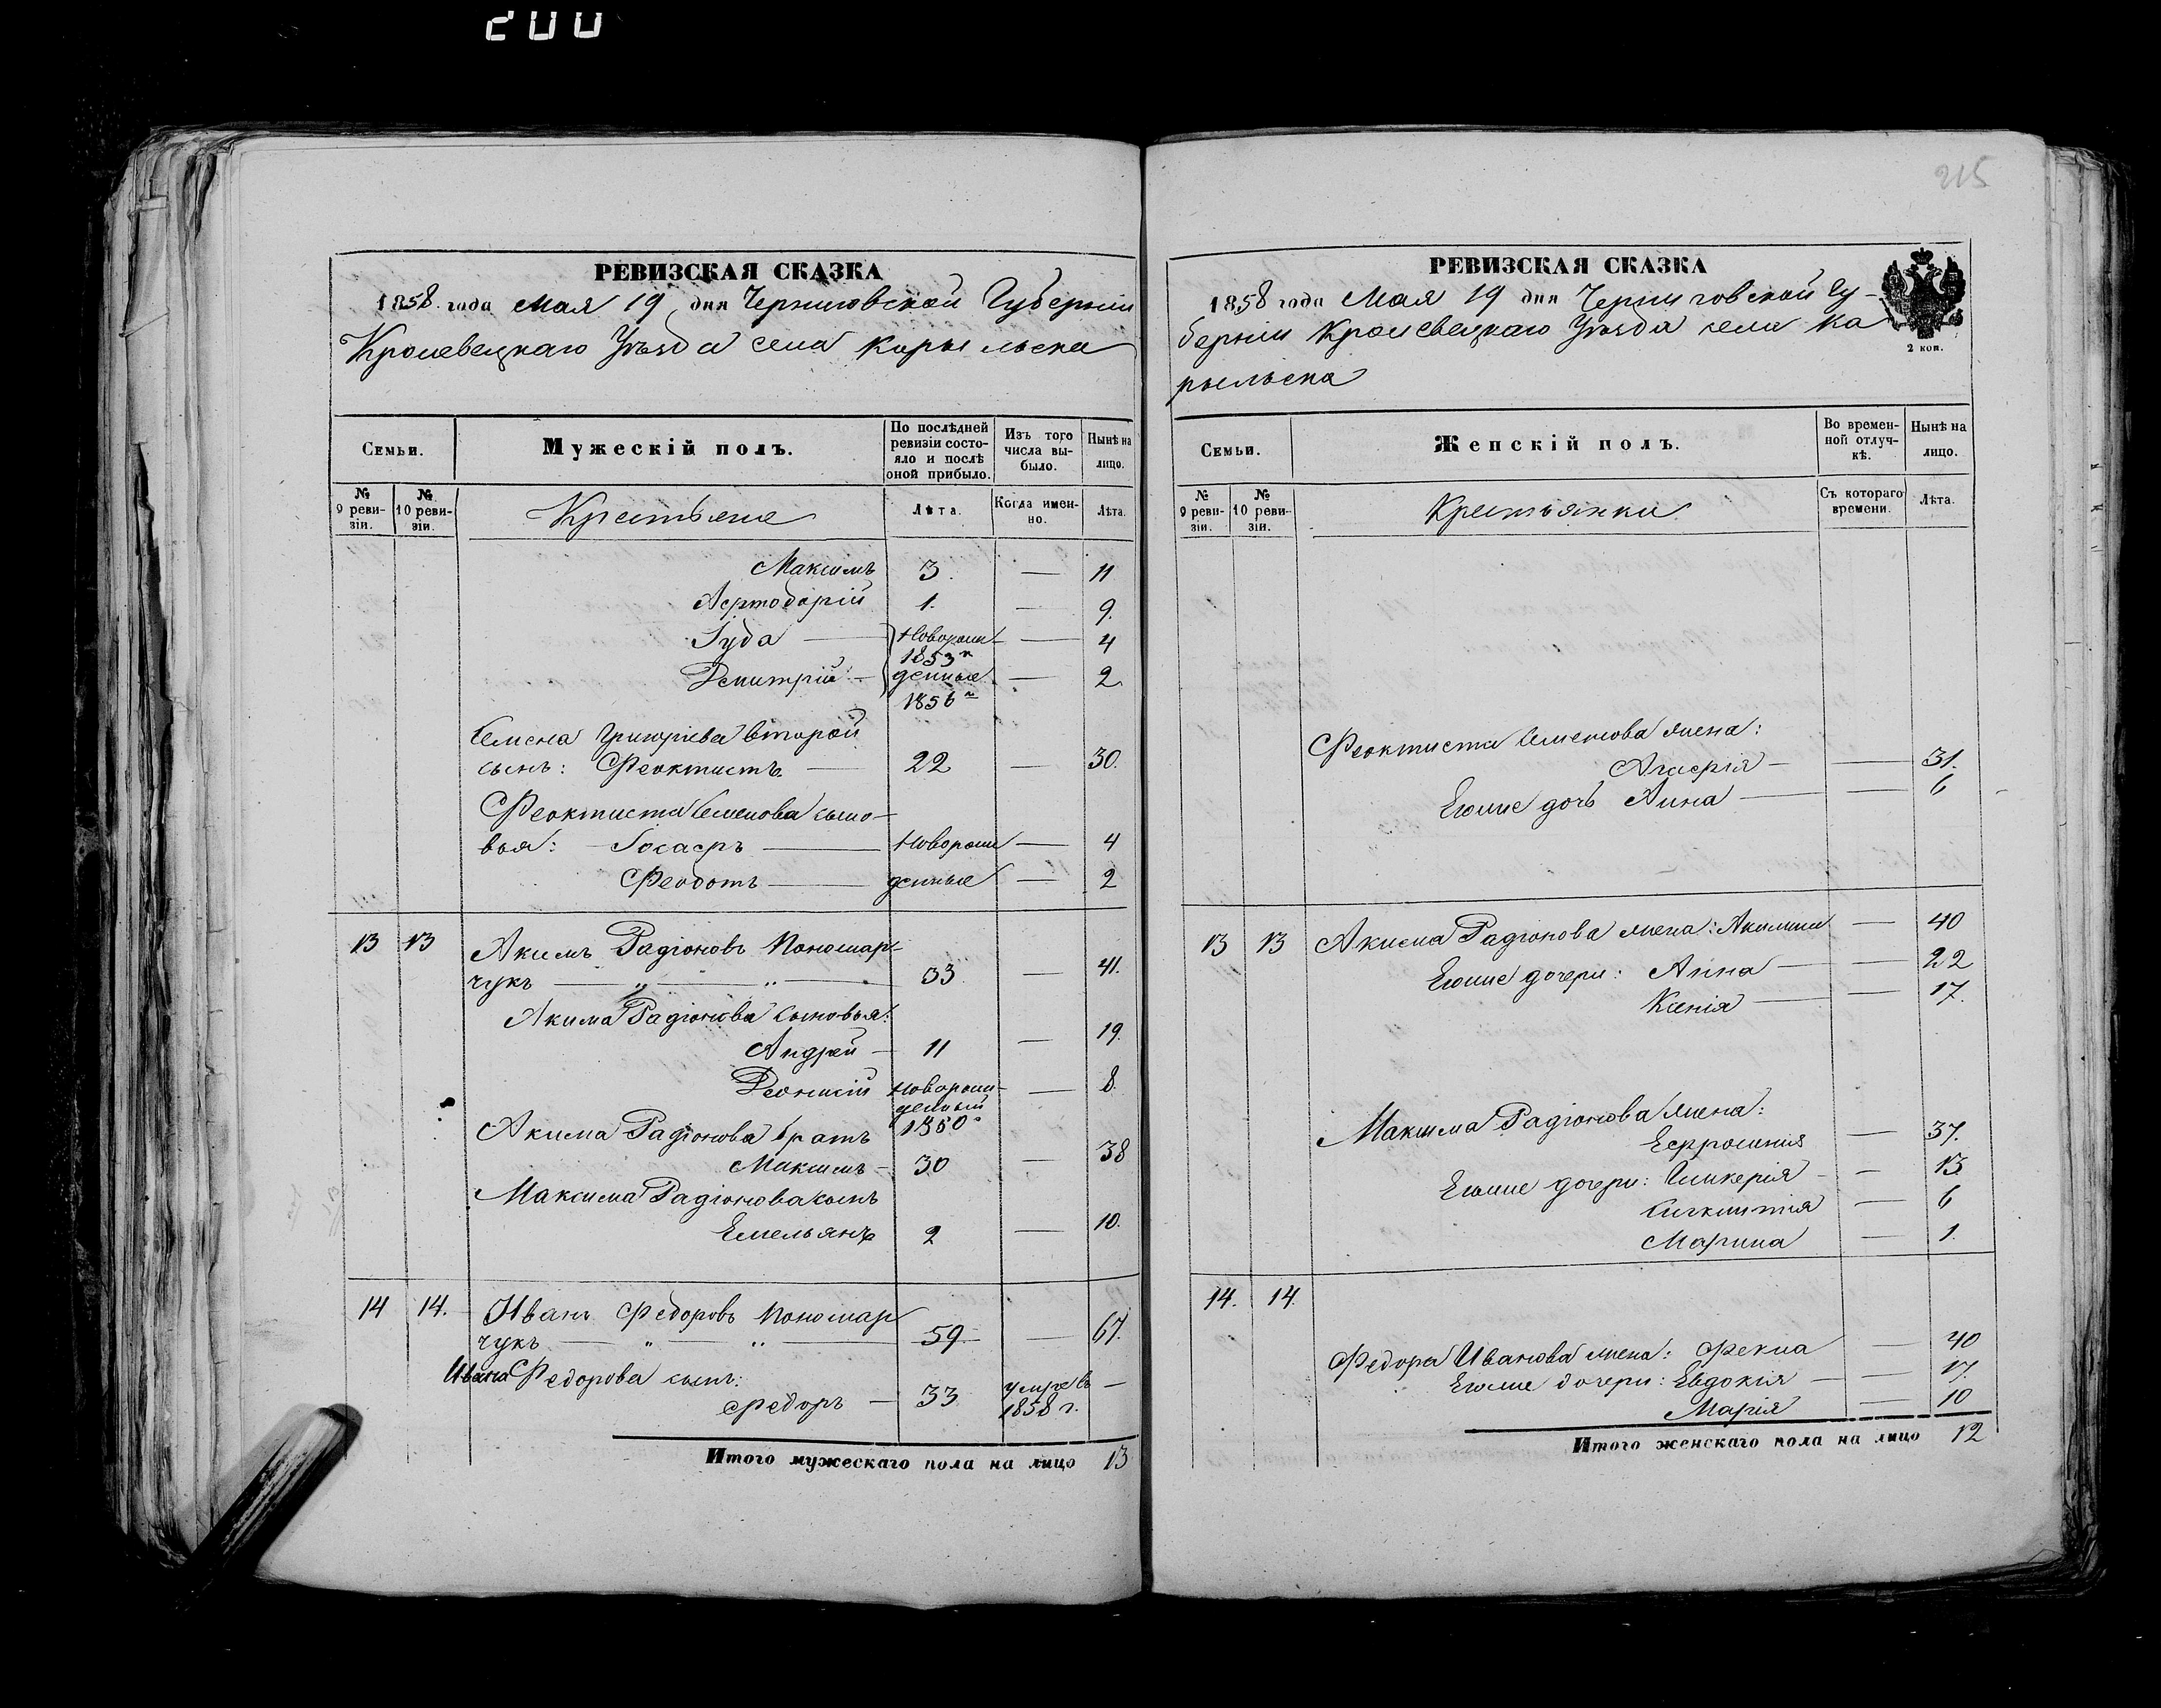 200
215
РЕВИЗСКАЯ СКАЗКА
1858 года Мая 19 дня Черниговской Губерніи
Кролевецкаго Уѣзда села Карыльска
Семьи.
Мужескій полъ.
По послѣдней ревизіи состояло и послѣ оной прибыло.
Изъ того числа выбыло.
Нынѣ на лицо.
№ 9 ревизіи.
№ 10 ревизіи.
Крестьяне
Лѣта.
Когда именно.
Лѣта.
Максимъ 3. — 11
1. — 9.
Іуда — Новорож- — 4
1853 г
Димитрій — денные — 2
1856 г
Семена Григоріева второй
сынъ: Феоктистъ — 22 — 30.
Феоктиста Семенова сыно-
вья: Іосафъ — Новорож — 4
Феодотъ — денные — 2
13 13 Акимъ Радіоновъ Пономар-
чукъ — " — " — 33 — 41.
Акима Радіонова сыновья:
Андрей — 11 — 19.
Новорож- — 8.
денный
1850 г
Акима Радіонова братъ
Максимъ — 30 — 38
Максима Радіонова сынъ
Емельянъ 2 — 10.
14 14. Иванъ Федоровъ Пономар
чукъ — " — " 59. — 67.
Ивана Федорова сынъ:
Федоръ — 33 умре въ —
1858 г.
Итого мужескаго пола на лицо 13
РЕВИЗСКАЯ СКАЗКА
1858 года Мая 19 дня Черниговской Гу-
берніи Кролевецкаго Уѣзда села Ка
рыльска
2 коп.
Семьи.
Женскій полъ.
Во временной отлучкѣ.
Нынѣ на лицо.
№ 9 ревизіи.
№ 10 ревизіи.
Крестьянки
Съ котораго времени.
Лѣта.
Феоктиста Семенова жена:
Агафія — — 31.
Егоже дочь Анна — — 6
13 13 Акима Радіонова жена: Акилина — 40
Егоже дочери: Анна — — 22
Ксенія — — 17.
Максима Радіонова жена:
Ефросинія — 37.
Егоже дочери: Гликерія — — 13
— 6
Марина — 1.
14. 14.
Федора Иванова жена: Фекла — 40
Егоже дочери: Евдокія — — 17.
Марія — 10
Итого женскаго пола на лицо 12